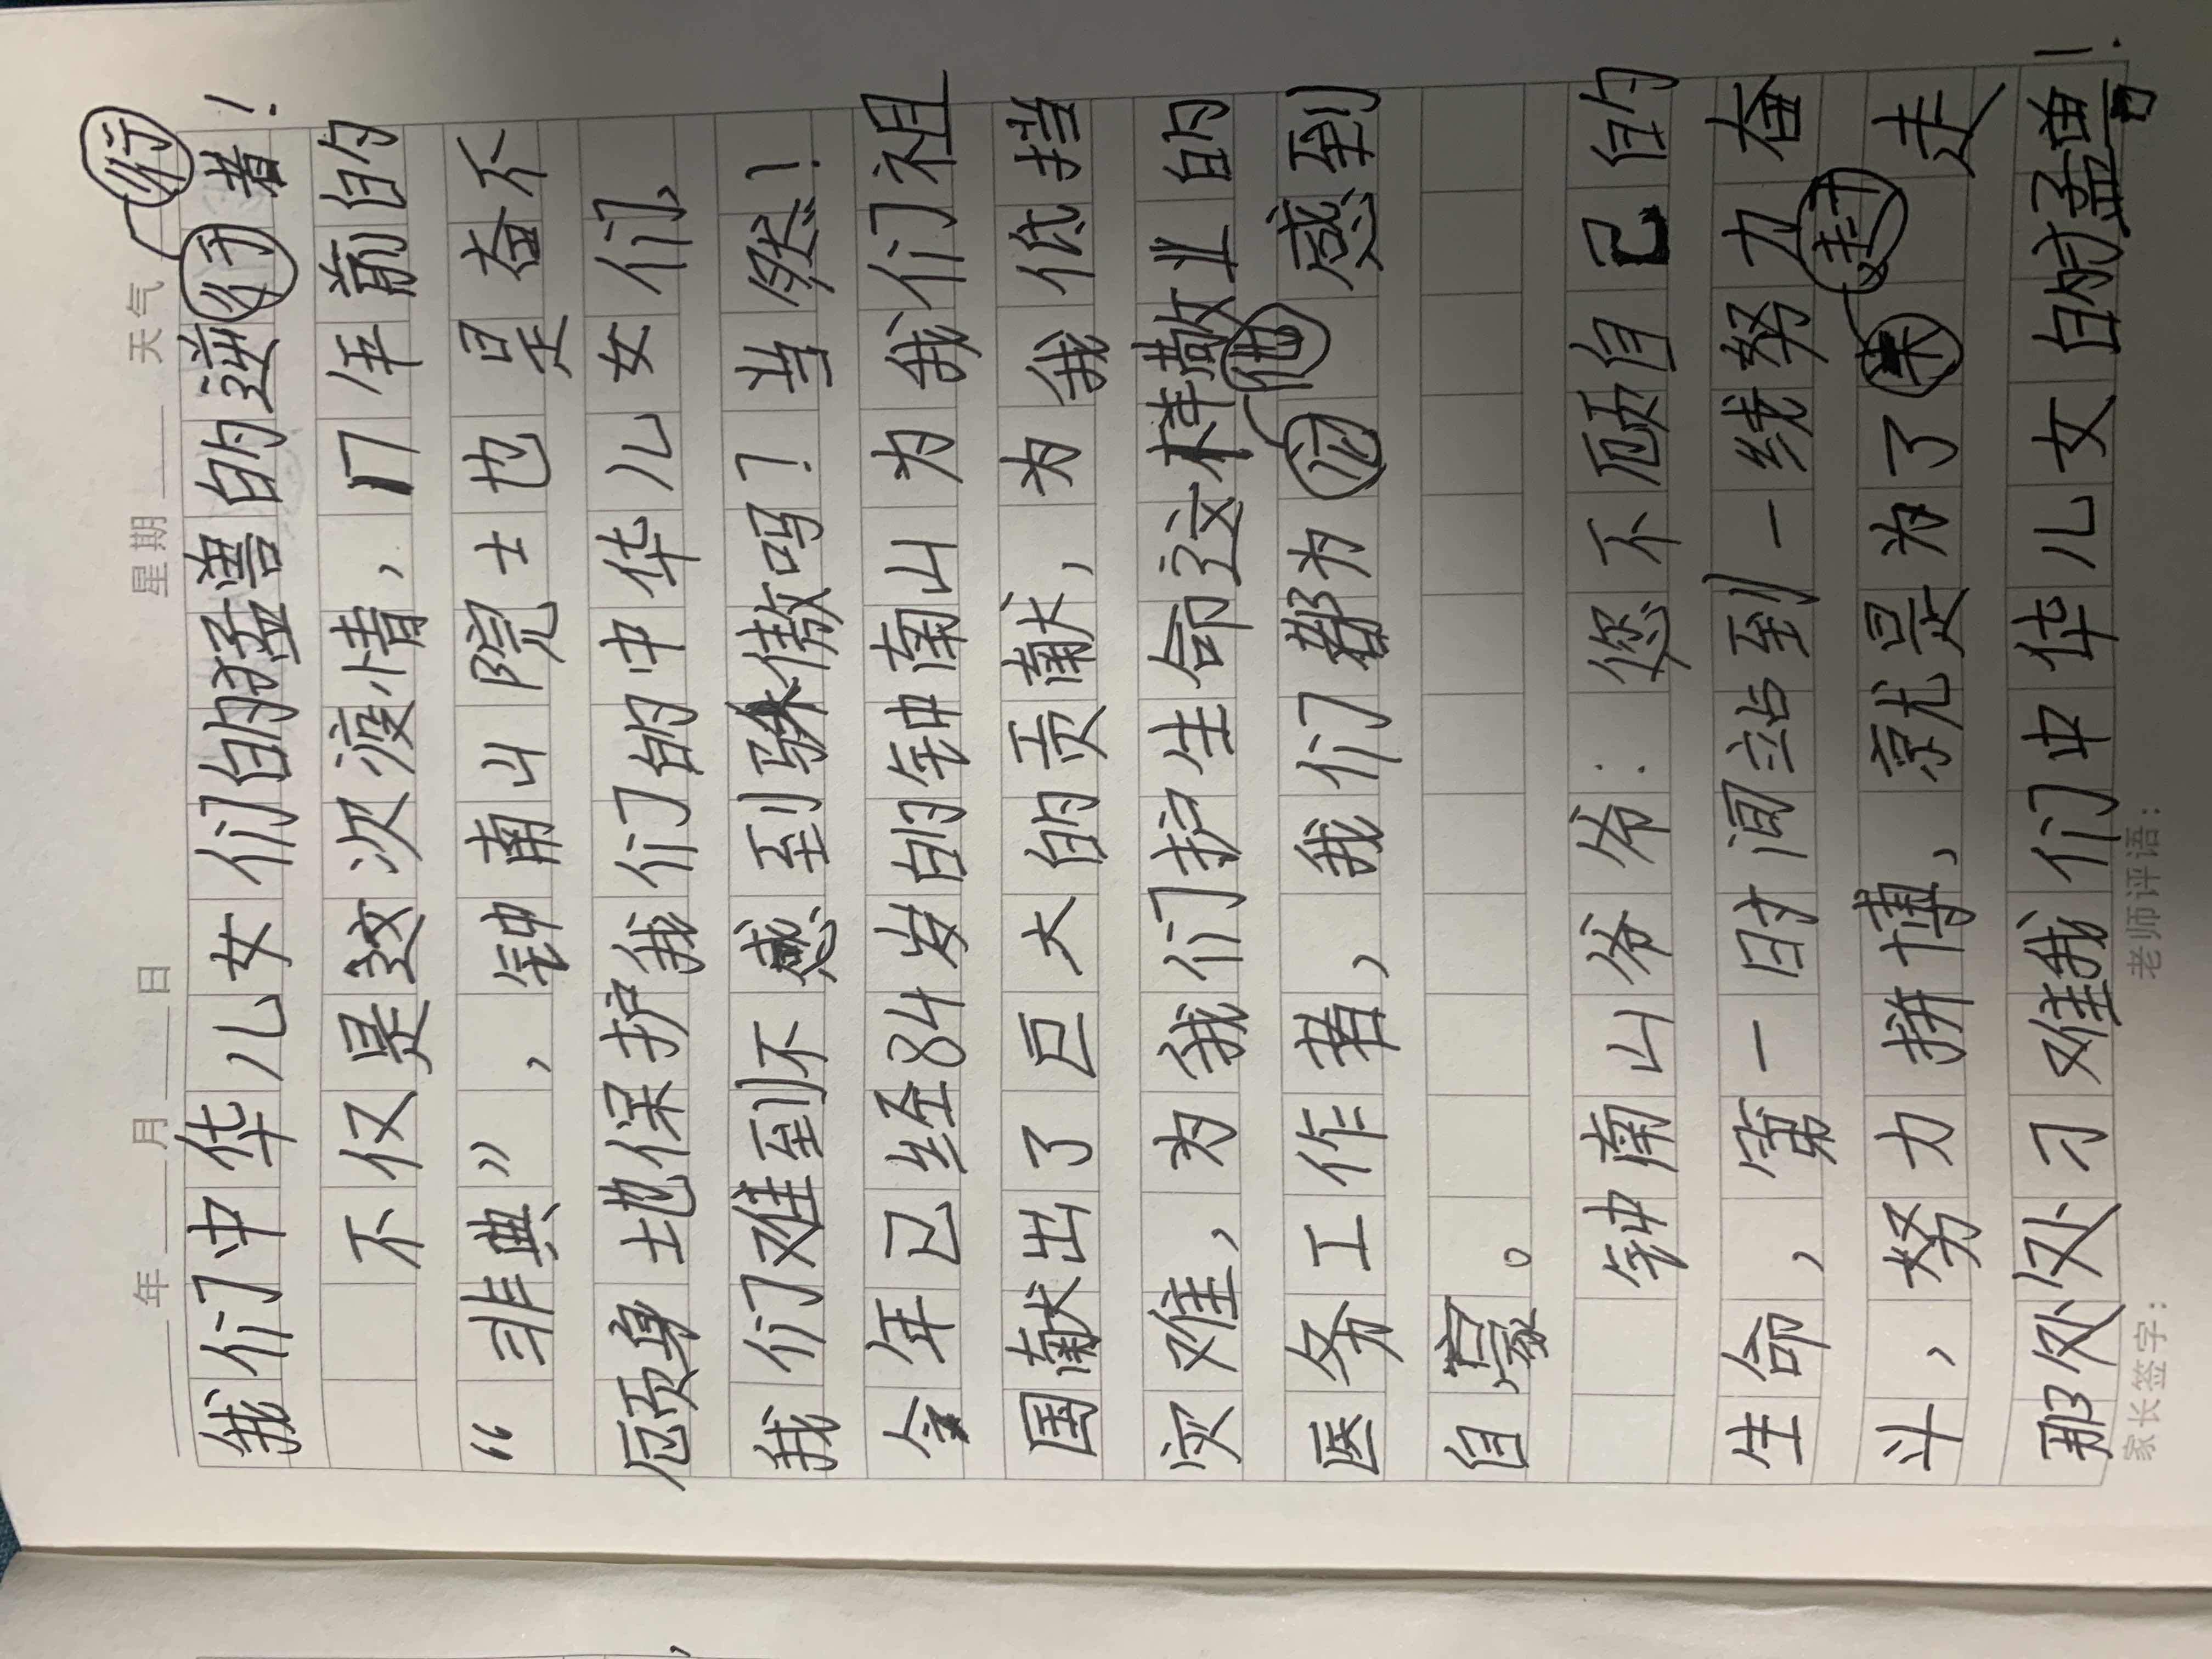 年 月 日 星期 天气
我们中华儿女们的猛兽的逆行者！
不仅是这次疫情，17年前的
“非典”，钟南山院士也是奋不
顾身地保护我们的中华儿女们，
我们难到不感到骄傲吗？当然！
今年已经84岁的钟南山为我们祖
国献出了巨大的贡献，为我低挡
灾难，为我们护生命这样敬业的
医务工作者，我们都为他感到
自豪。
钟南山爷爷：您不顾自己的
生命，第一时间站到一线努力奋
斗，努力拼博，就是为了赶走
那处处刁难我们中华儿女的猛兽！
家长签字： 老师评语：